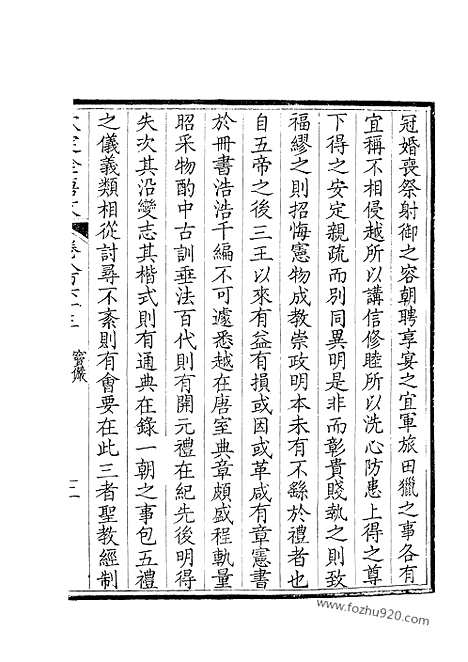 冠婚喪祭射御之容朝聘享宴之宜軍旅田獵之事各有
宜稱不相侵越所以講信修睦所以洗心防患上得之尊
下得之安定親疏而別同異明是非而彰貴賤執之則致
福繆之則招悔憲物成教崇政明本未有不繇於禮者也
自五帝之後三王以來有益有損或因或革咸有章憲書
於冊書浩浩千編不可遽悉越在唐室典章頗盛程軌量
昭采物酌中古訓垂法百代則有開元禮在紀先後明得
失次其沿變志其楷式則有通典在錄一朝之事包五禮
之儀義類相從討尋不紊則有會要在此三者聖教經制
欽定全唐文
卷八百六十三
竇儼
三
www.fozhu920.com